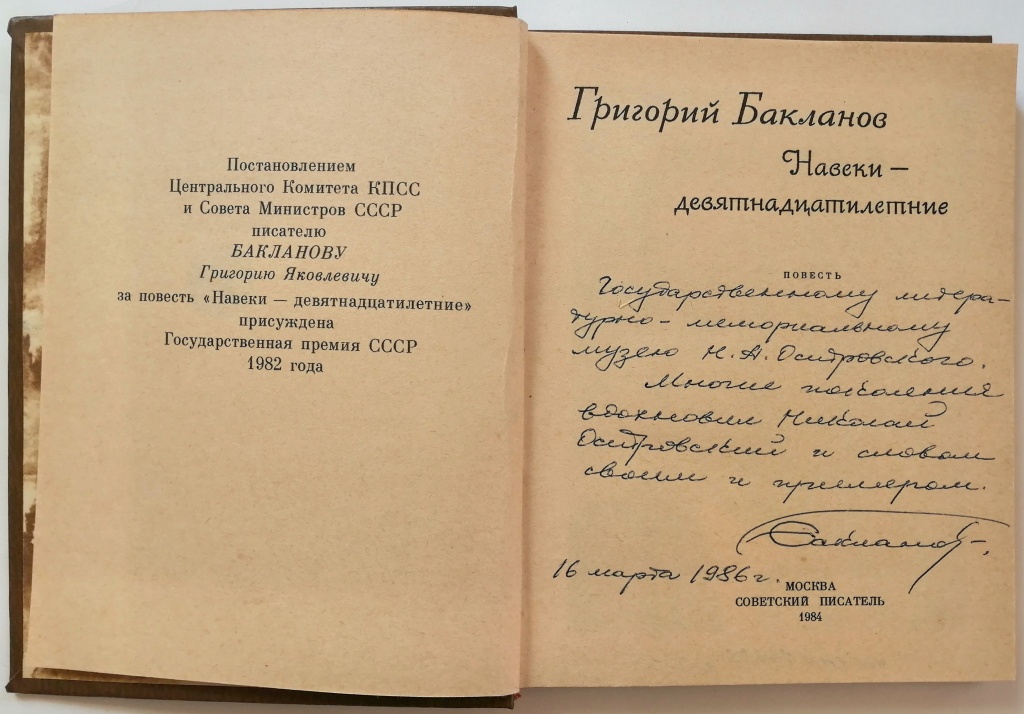 Постановлением
Центрального Комитета КПСС
и Совета Министров СССР
писателю
БАКЛАНОВУ
Григорию Яковлевичу
за повесть «Навеки — девятнадцатилетние»
присуждена
Государственная премия СССР
1982 года
Григорий Бакланов
Навеки —
девятнадцатилетние
ПОВЕСТЬ
Государственному литера-
турно-мемориальному
музею Н. А. Островского.
Многие поколения
вдохновил Николай
Островский и словом
своим и примером.
Бакланов
16 марта 1986 г.
МОСКВА
СОВЕТСКИЙ ПИСАТЕЛЬ
1984